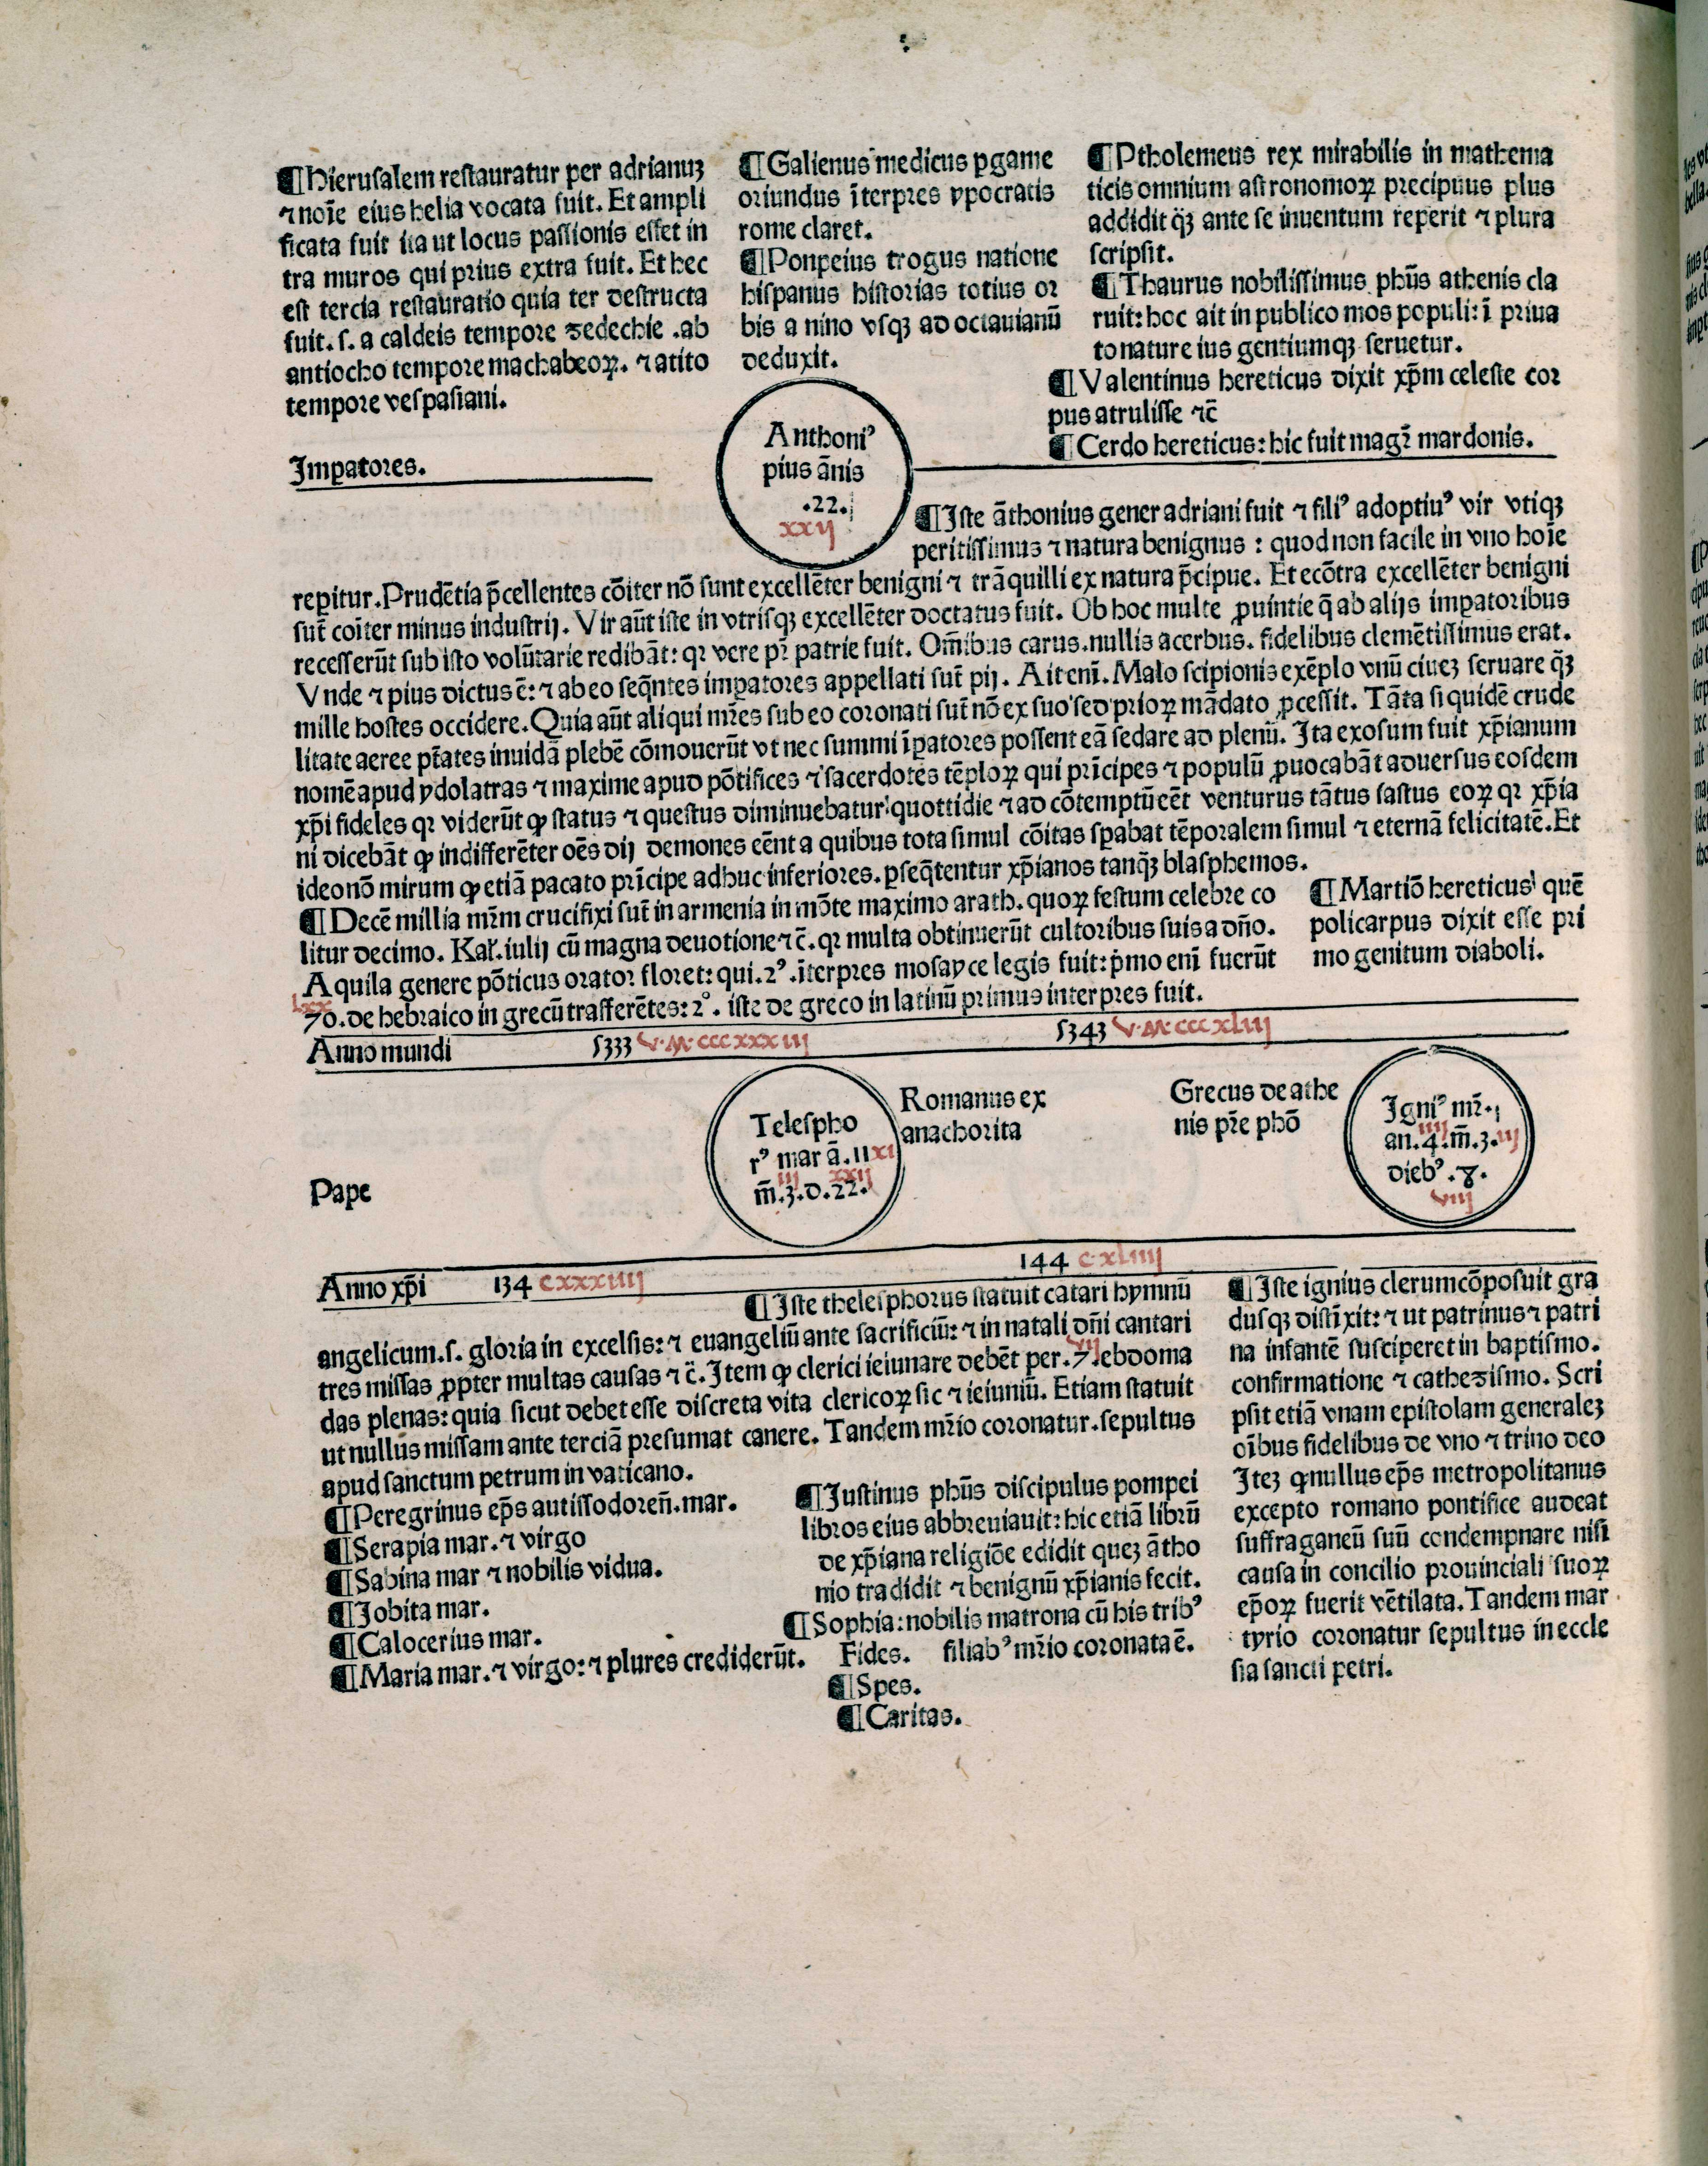 ¶Hierusalem restauratur per adrianuꝫ
⁊ noīe eius helia vocata fuit. Et ampli
ficata fuit ita ut locus passionis esset in
tra muros qui prius extra fuit. Et hec
est tercia restauratio quia ter destructa
fuit. s. a caldeis tempore zedechie .ab
antiocho tempore machabeoꝝ. ⁊ a tito
tempore vespasiani.
¶Galienus medicus ꝑgame
oriundus īterpres ypocratis
rome claret.
¶Ponpeius trogus natione
hispanus historias totius or
bis a nino vsqꝫ ad octauianū
deduxit.
¶Ptholemeus rex mirabilis in mathema
ticis omnium astronomoꝝ precipuus plus
addidit q̄ꝫ ante se inuentum reperit ⁊ plura
scripsit.
¶Thaurus nobilissimus phūs athenis cla
ruit: hoc ait in publico mos populi: ī priua
to nature ius gentiumqꝫ seruetur.
¶Valentinus hereticus dixit xp̄m celeste cor
pus atrulisse ⁊c̄
¶Cerdo hereticus: hic fuit magr̄ mardonis.
Imꝑatores.
Anthoniꝰ
pius ānis
.22.
xxij
¶Iste āthonius gener adriani fuit ⁊ filiꝰ adoptiuꝰ vir vtiqꝫ
peritissimus ⁊ natura benignus : quod non facile in vno hoīe
reꝑitur. Prudētia p̄cellentes cōiter nō sunt excellēter benigni ⁊ trāquilli ex natura p̄cipue. Et ecōtra excellēter benigni
sūt coīter minus industrij. Vir aūt iste in vtrisqꝫ excellēter doctatus fuit. Ob hoc multe ꝓuintie q̄ ab alijs imꝑatoribus
recesserūt sub isto volūtarie redibāt: qꝛ vere pr̄ patrie fuit. Om̄ibus carus. nullis acerbus. fidelibus clemētissimus erat.
Vnde ⁊ pius dictus ē: ⁊ ab eo seq̄ntes imꝑatores appellati sūt pij. Ait enī. Malo scipionis exēplo vnū ciueꝫ seruare q̄ꝫ
mille hostes occidere. Quia aūt aliqui mr̄es sub eo coronati sūt nō ex suo sed prioꝝ mādato ꝓcessit. Tāta si quidē crude
litate aeree ptātes inuidā plebē cōmouerūt vt nec summi īꝑatores possent eā sedare ad plenū. Ita exosum fuit xp̄ianum
nomē apud ydolatras ⁊ maxime apud pōtifices ⁊ sacerdotes tēploꝝ qui prīcipes ⁊ populū ꝓuocabāt aduersus eosdem
xp̄i fideles qꝛ viderūt ꝙ status ⁊ questus diminuebatur quottidie ⁊ ad cōtemptū eēt venturus tātus fastus eoꝝ qꝛ xp̄ia
ni dicebāt ꝙ indifferēter oēs dij demones eēnt a quibus tota simul cōitas sꝑabat tēporalem simul ⁊ eternā felicitatē. Et
ideo nō mirum ꝙ etiā pacato prīcipe adhuc inferiores. ꝑseq̄tentur xp̄ianos tanq̄ꝫ blasphemos.
¶Decē millia mr̄m crucifixi sūt in armenia in mōte maximo arath. quoꝝ festum celebre co
litur decimo. Kal. iulij cū magna deuotione ⁊c̄. qꝛ multa obtinuerūt cultoribus suis a dn̄o.
Aquila genere pōticus orator floret: qui .2ꝰ. īterpres mosayce legis fuit: p̄mo enī fuerūt
lxx
70. de hebraico in grecū trāsferētes: 2°. iste de greco in latinū primus interpres fuit.
¶Martiō hereticus quē
policarpus dixit esse pri
mo genitum diaboli.
Anno mundi 5333 v.M.cccxxxiij 5343 v.M.cccxliij
Pape
Telespho
rꝰ mar ā. 11 xi
iij xxij
m̄. 3. d. 22.
Romanus ex
anachorita
Grecus de athe
nis pr̄e phō
Igniꝰ mr̄.
iiij
an. 4. m̄. 3. iij
diebꝰ .8.
viij
Anno xp̄i 134 cxxxiiij 144 cxliiij
¶Iste thelesphorus statuit cātari hymnū
angelicum. s. gloria in excelsis: ⁊ euangeliū ante sacrificiū: ⁊ in natali dn̄i cantari
vij
tres missas ꝓpter multas causas ⁊c̄. Item ꝙ clerici ieiunare debēt per .7. ebdoma
das plenas: quia sicut debet esse discreta vita clericoꝝ sic ⁊ ieiuniū. Etiam statuit
ut nullus missam ante terciā presumat canere. Tandem mr̄io coronatur. sepultus
apud sanctum petrum in vaticano.
¶Peregrinus ep̄s autissodoren̄. mar.
¶Serapia mar. ⁊ virgo
¶Sabina mar ⁊ nobilis vidua.
¶Iobita mar.
¶Calocerius mar.
¶Maria mar. ⁊ virgo: ⁊ plures crediderūt.
¶Iustinus phūs discipulus pompei
libros eius abbreuiauit: hic etiā librū
de xp̄iana religiōe edidit queꝫ ātho
nio tradidit ⁊ benignū xp̄ianis fecit.
¶Sophia: nobilis matrona cū his tribꝰ
Fides. filiabꝰ mr̄io coronata ē.
¶Spes.
¶Caritas.
¶Iste ignius clerum cōposuit gra
dusqꝫ distīxit: ⁊ ut patrinus ⁊ patri
na infantē susciperet in baptismo.
confirmatione ⁊ cathezismo. Scri
psit etiā vnam epistolam generaleꝫ
oībus fidelibus de vno ⁊ trino deo
Iteꝫ ꝙ nullus ep̄s metropolitanus
excepto romano pontifice audeat
suffraganeū suū condempnare nisi
causa in concilio prouinciali suoꝝ
ep̄oꝝ fuerit vētilata. Tandem mar
tyrio coronatur sepultus in eccle
sia sancti petri.